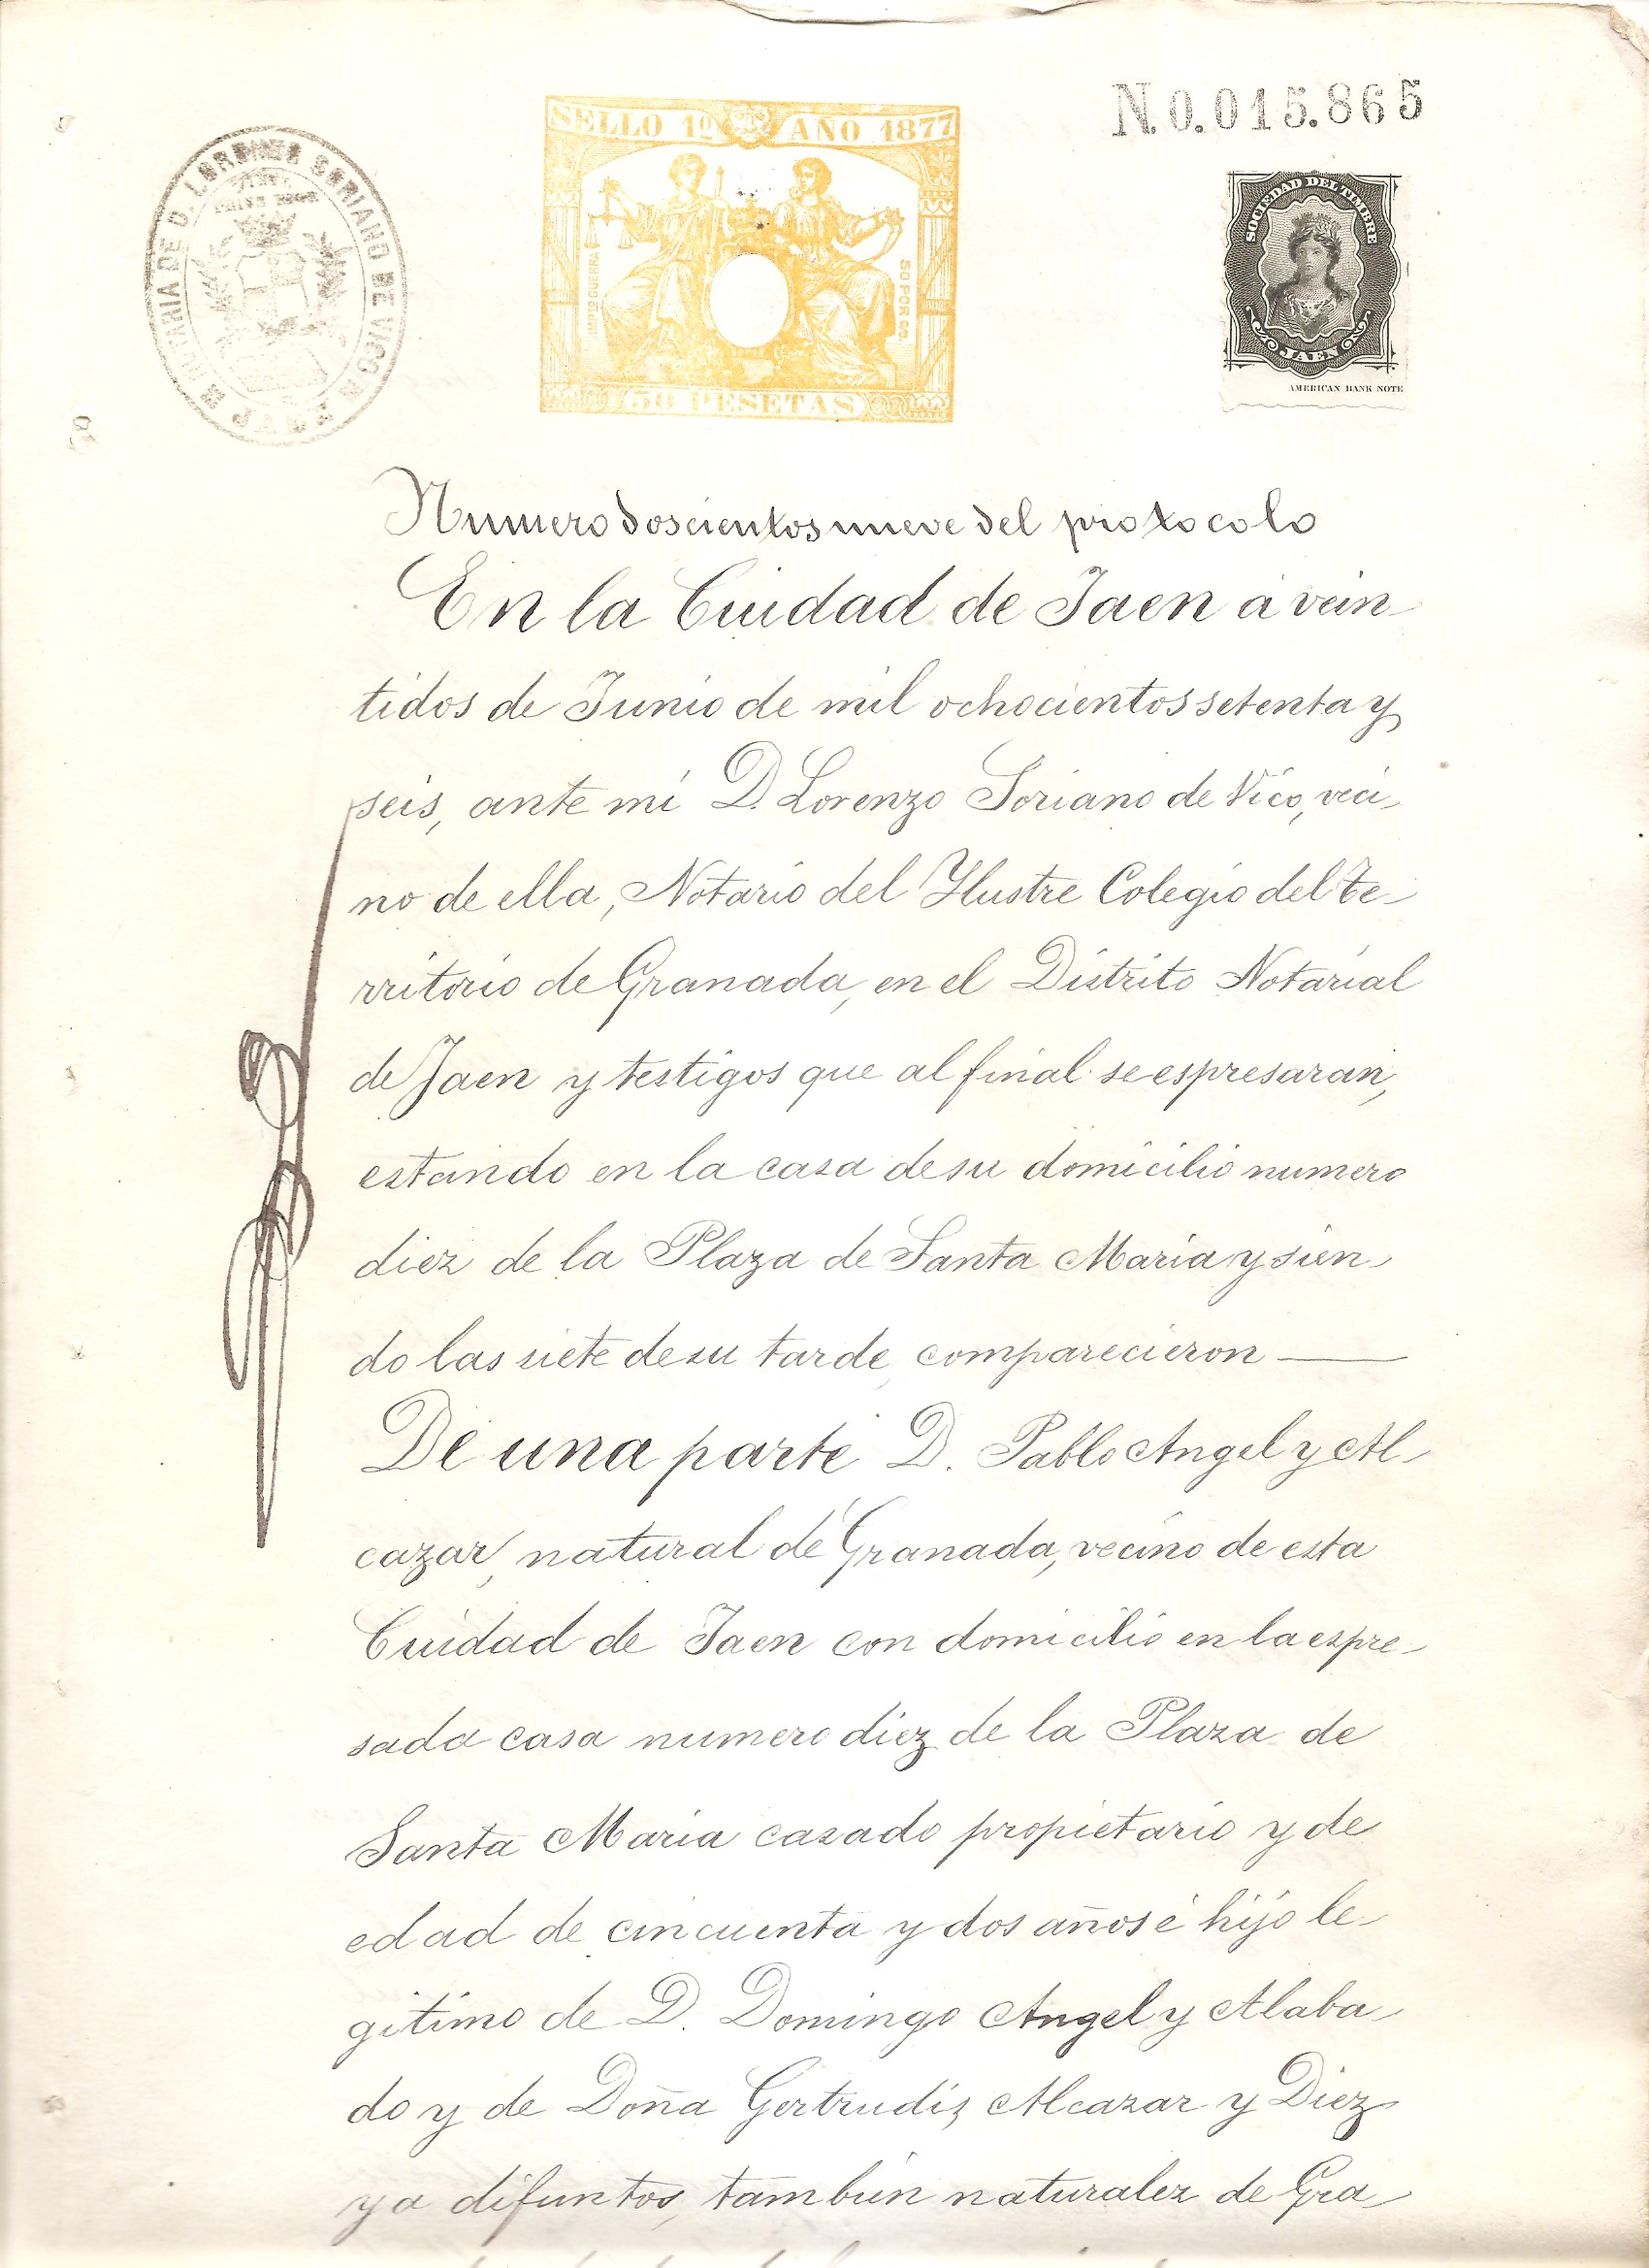 N.0.015.865
NOTARIA DE D. LORENZO SORIANO DE VICO
JAEN
SELLO 1º AÑO 1877
IMPTO GUERRA
50 POR CO.
50 PESETAS
SOCIEDAD DEL TIMBRE
JAEN
AMERICAN BANK NOTE
Numero doscientos nueve del protocolo
En la Ciudad de Jaen á vein-
tidos de Junio de mil ochocientos setenta y
seis, ante mi D. Lorenzo Soriano de Vico, veci-
no de ella, Notario del Ylustre Colegio del te-
rritorio de Granada, en el Distrito Notarial
de Jaen y testigos que al final se espresaran,
estando en la casa de su domicilio numero
diez de la Plaza de Santa Maria y sien-
do las siete de su tarde, comparecieron —
De una parte D. Pablo Angel y Al-
cazar, natural de Granada, vecino de esta
Ciudad de Jaen con domicilio en la espre-
sada casa numero diez de la Plaza de
Santa Maria casado propietario y de
edad de cincuenta y dos años é hijo le-
gitimo de D. Domingo Angel y Alaba-
do y de Doña Gertrudis Alcazar y Diez
ya difuntos, tambien naturalez de Gra-